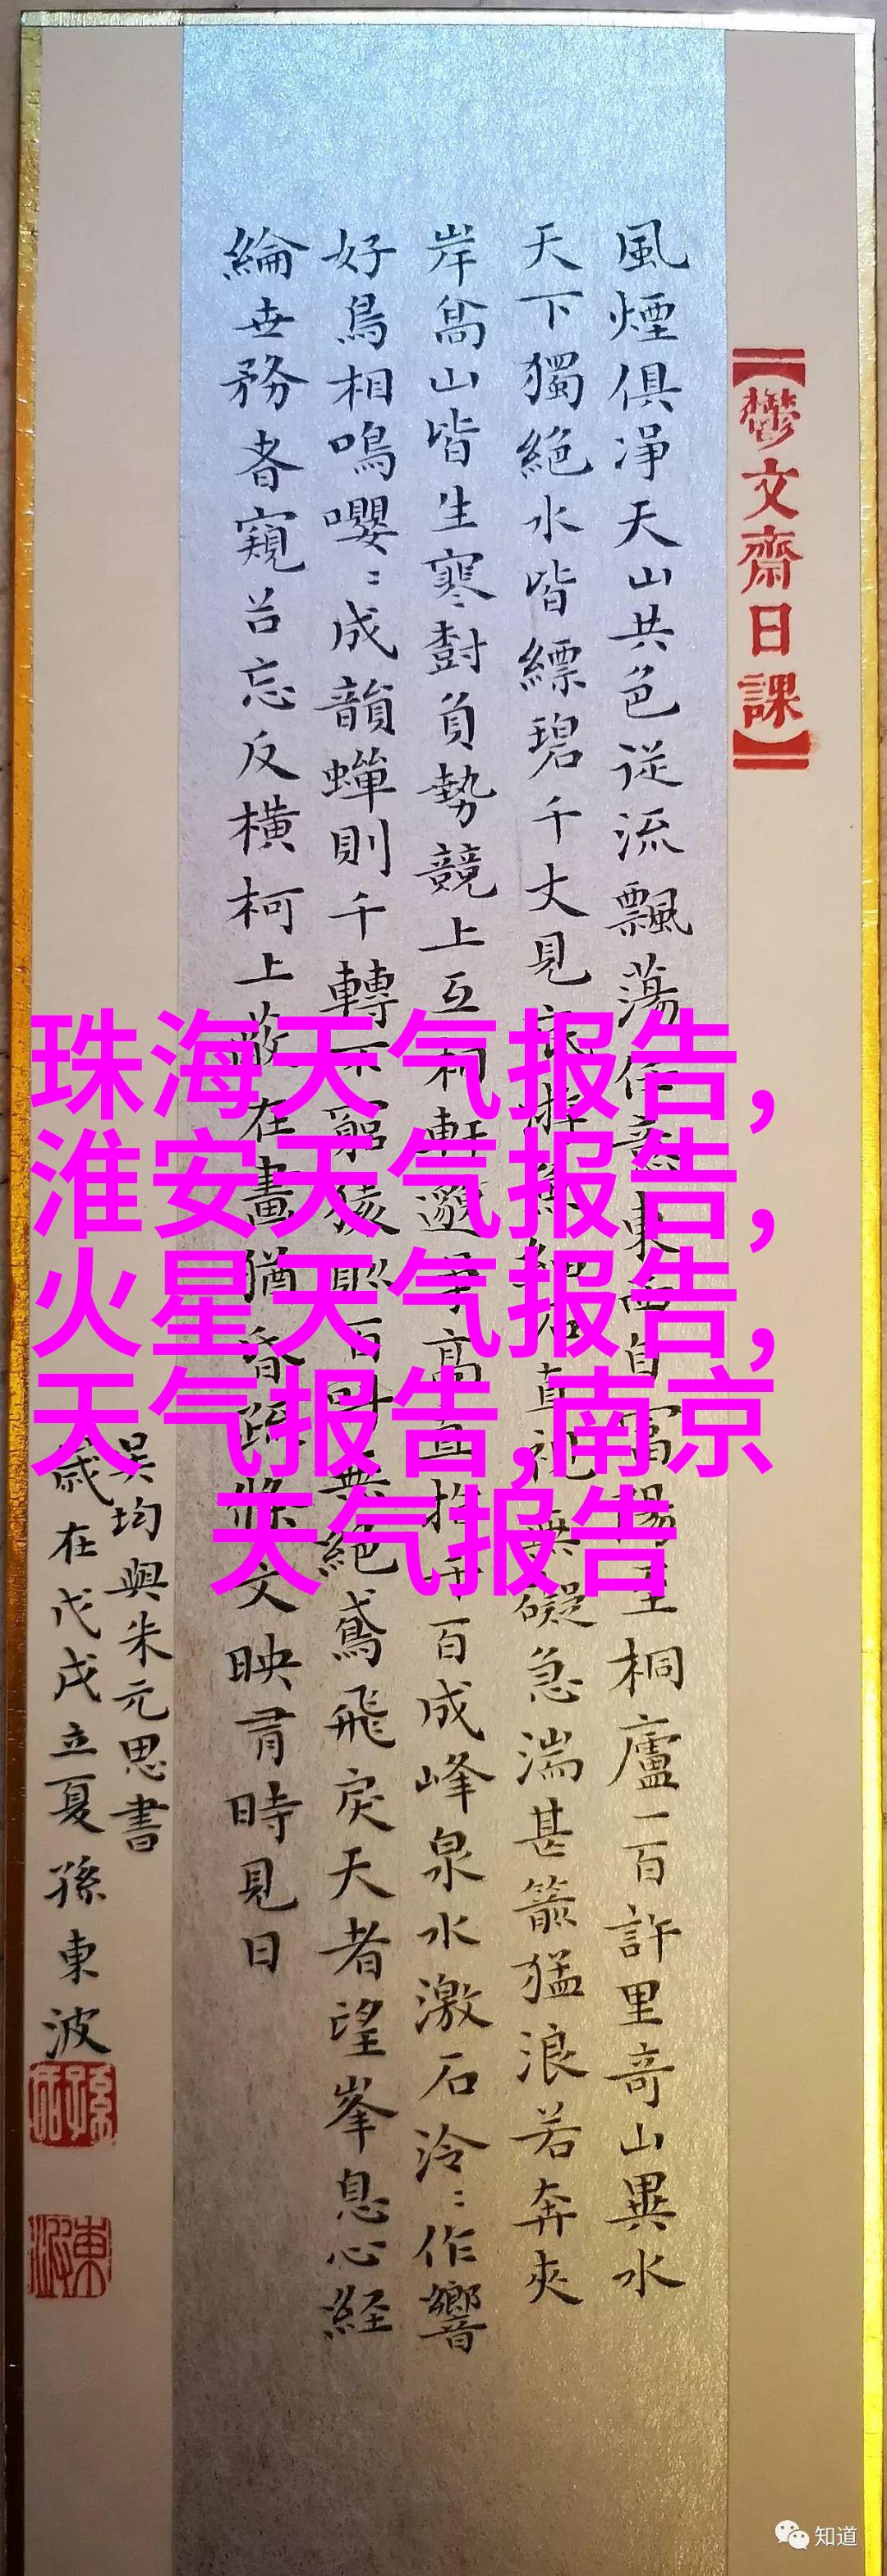 鬱文齋日課
風煙俱淨天山共色從流飄蕩任意東西自富陽至桐廬一百許里奇山異水
天下獨絕水皆縹碧千丈見底游魚細石直視無礙急湍甚箭猛浪若奔夾
岸高山皆生寒樹負勢競上互相軒邈爭高直指千百成峰泉水激石泠〻作響
好鳥相鳴嚶〻成韻蟬則千轉不窮猿則百叫無絕鳶飛戾天者望峯息心経
綸世務者窺谷忘反橫柯上蔽在晝猶昏疏條交映有時見日
吳均與朱元思書
歲在戊戌立夏孫東波
珠海天气报告,
淮安天气报告,
火星天气报告,
天气报告,南京
天气报告
知道